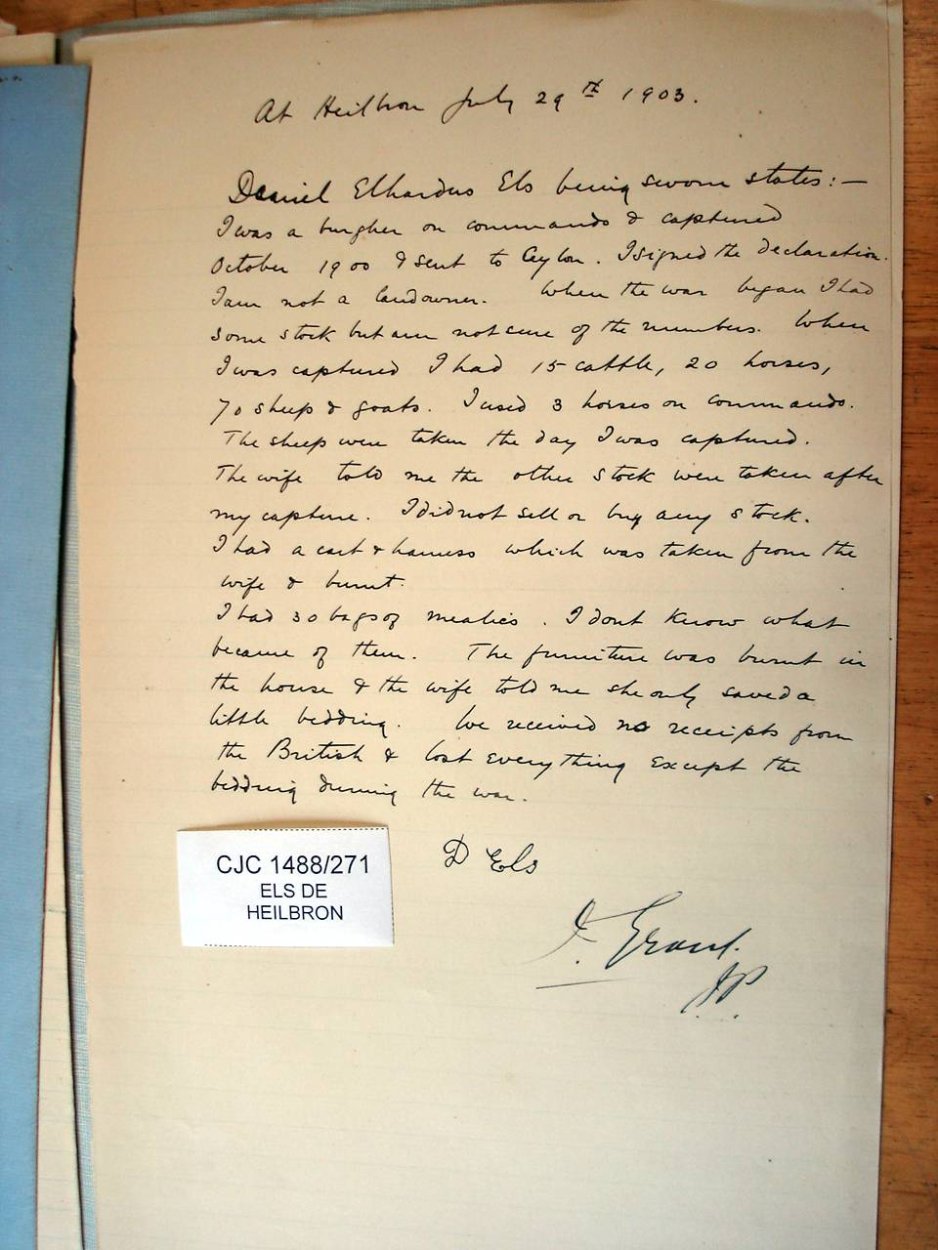 At Heilbron July 29th 1903.
Daniel Elhardus Els being sworn states:—
I was a burgher on commando & captured
October 1900 & sent to Ceylon. I signed the Declaration.
I am not a landowner. When the war began I had
some stock but am not sure of the numbers. When
I was captured I had 15 cattle, 20 horses,
70 sheep & goats. I used 3 horses on commando.
The sheep were taken the day I was captured.
The wife told me the other stock were taken after
my capture. I did not sell or buy any stock.
I had a cart & harness which was taken from the
wife & burnt.
I had 30 bags of mealies. I dont know what
became of them. The furniture was burnt in
the house & the wife told me she only saved a
little bedding. We received no receipts from
the British & lost everything except the
bedding during the war.
D Els
Grant.
J.P.
CJC 1488/271
ELS DE
HEILBRON